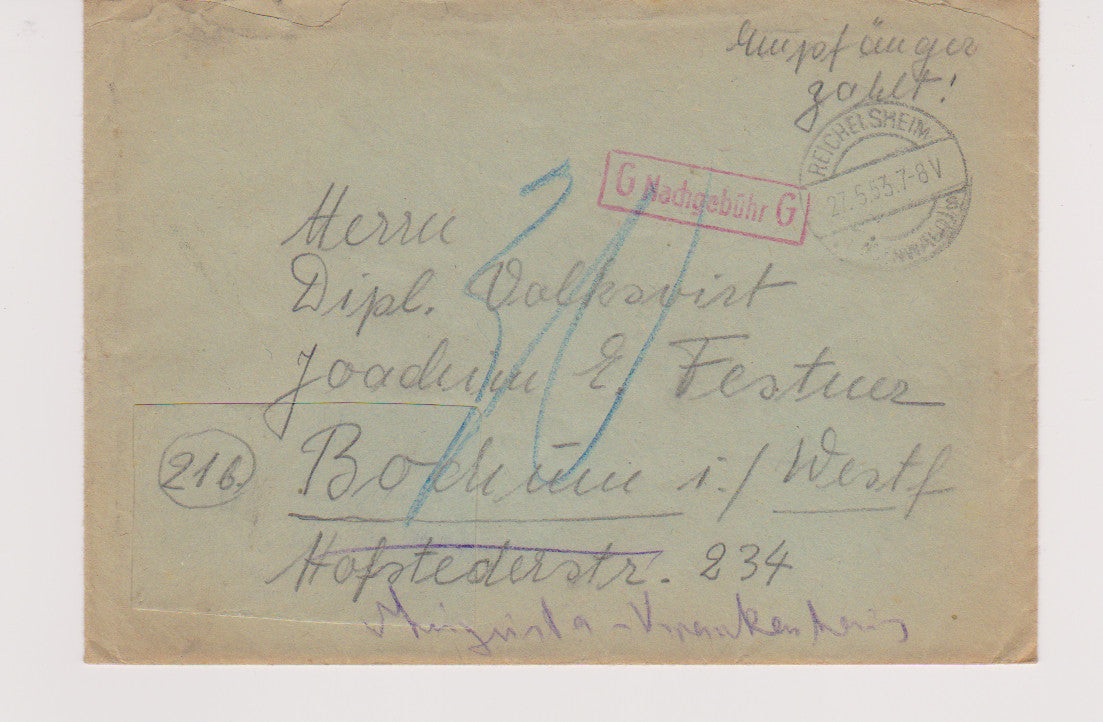 Empfänger
zahlt!
REICHELSHEIM
27.5.53.7-8V
G Nachgebühr G
30
Herrn
Dipl. Volkswirt
Joachim E. Festner
21b.
Bochum i./Westf
Hofstederstr. 234
Augusta-Krankenhaus